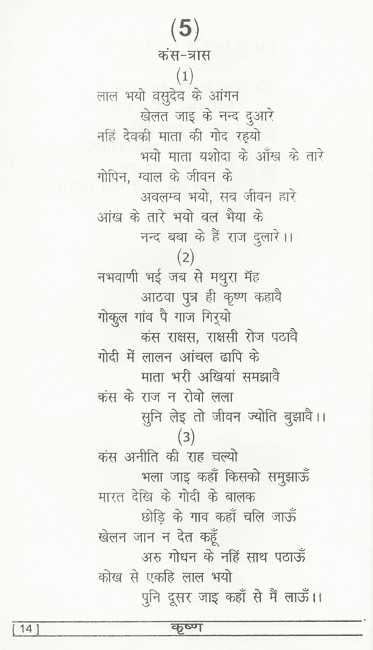 (5)
कंस-त्रास
(1)
लाल भयो वसुदेव के आंगन
खेलत जाइ के नन्द दुआरे
नहिं देवकी माता की गोद रह्यो
भयो माता यशोदा के आँख के तारे
गोपिन, ग्वाल के जीवन के
अवलम्ब भयो, सब जीवन हारे
आंख के तारे भयो बल भैया के
नन्द बबा के हैं राज दुलारे।।
(2)
नभवाणी भई जब से मथुरा मॅह
आठवा पुत्र ही कृष्ण कहावै
गोकुल गांव पै गाज गिर्‌यो
कंस राक्षस, राक्षसी रोज पठावै
गोदी में लालन आंचल ढापि के
माता भरी अखियां समझावै
कंस के राज न रोवो लला
सुनि लेइ तो जीवन ज्योति बुझावै।।
(3)
कंस अनीति की राह चल्यो
भला जाइ कहाँ किसको समुझाऊँ
मारत देखि के गोदी के बालक
छोड़ि के गाव कहाँ चलि जाऊँ
खेलन जान न देत कहूँ
अरु गोधन के नहिं साथ पठाऊँ
कोख से एकहि लाल भयो
पुनि दूसर जाइ कहाँ से मैं लाऊँ।।
[14] कृष्ण